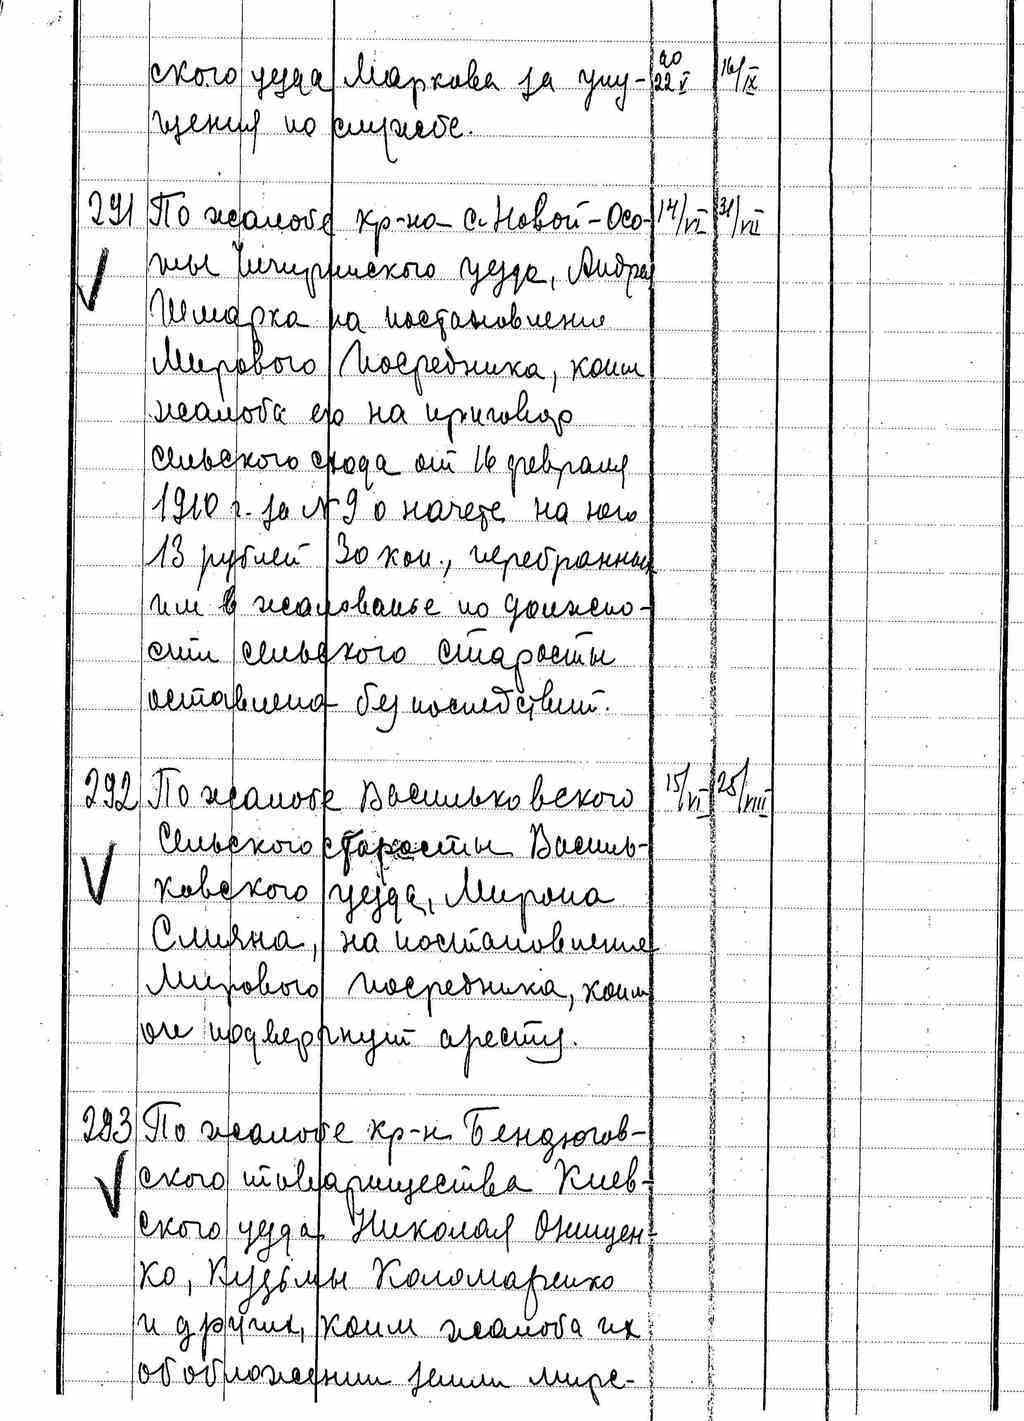 ского уезда Маркова за упу- 20 22/V 16/IX
щения по службе.
291 По жалобе кр-на с. Новой-Осо- 14/VI 31/VII
ты Чигиринского уезда, Андрея
Шмарка на постановление
Мирового Посредника, коим
жалоба его на приговор
сельского схода от 16 февраля
1910 г. за № 9 о начете на него
13 рублей 30 коп., перебранных
им в жалованье по должно-
сти сельского старосты
оставлена без последствий.
292 По жалобе Васильковского 15/VI 25/VIII
сельского старосты Василь-
ковского уезда, Мирона
Смияна, на постановление
Мирового посредника, коим
он подвергнут аресту.
293 По жалобе кр-н Бендюгов-
ского товарищества Киев-
ского уезда Николая Онищен-
ко, Кузьмы Коломарченко
и других, коим жалоба их
об обложении земли мирс-